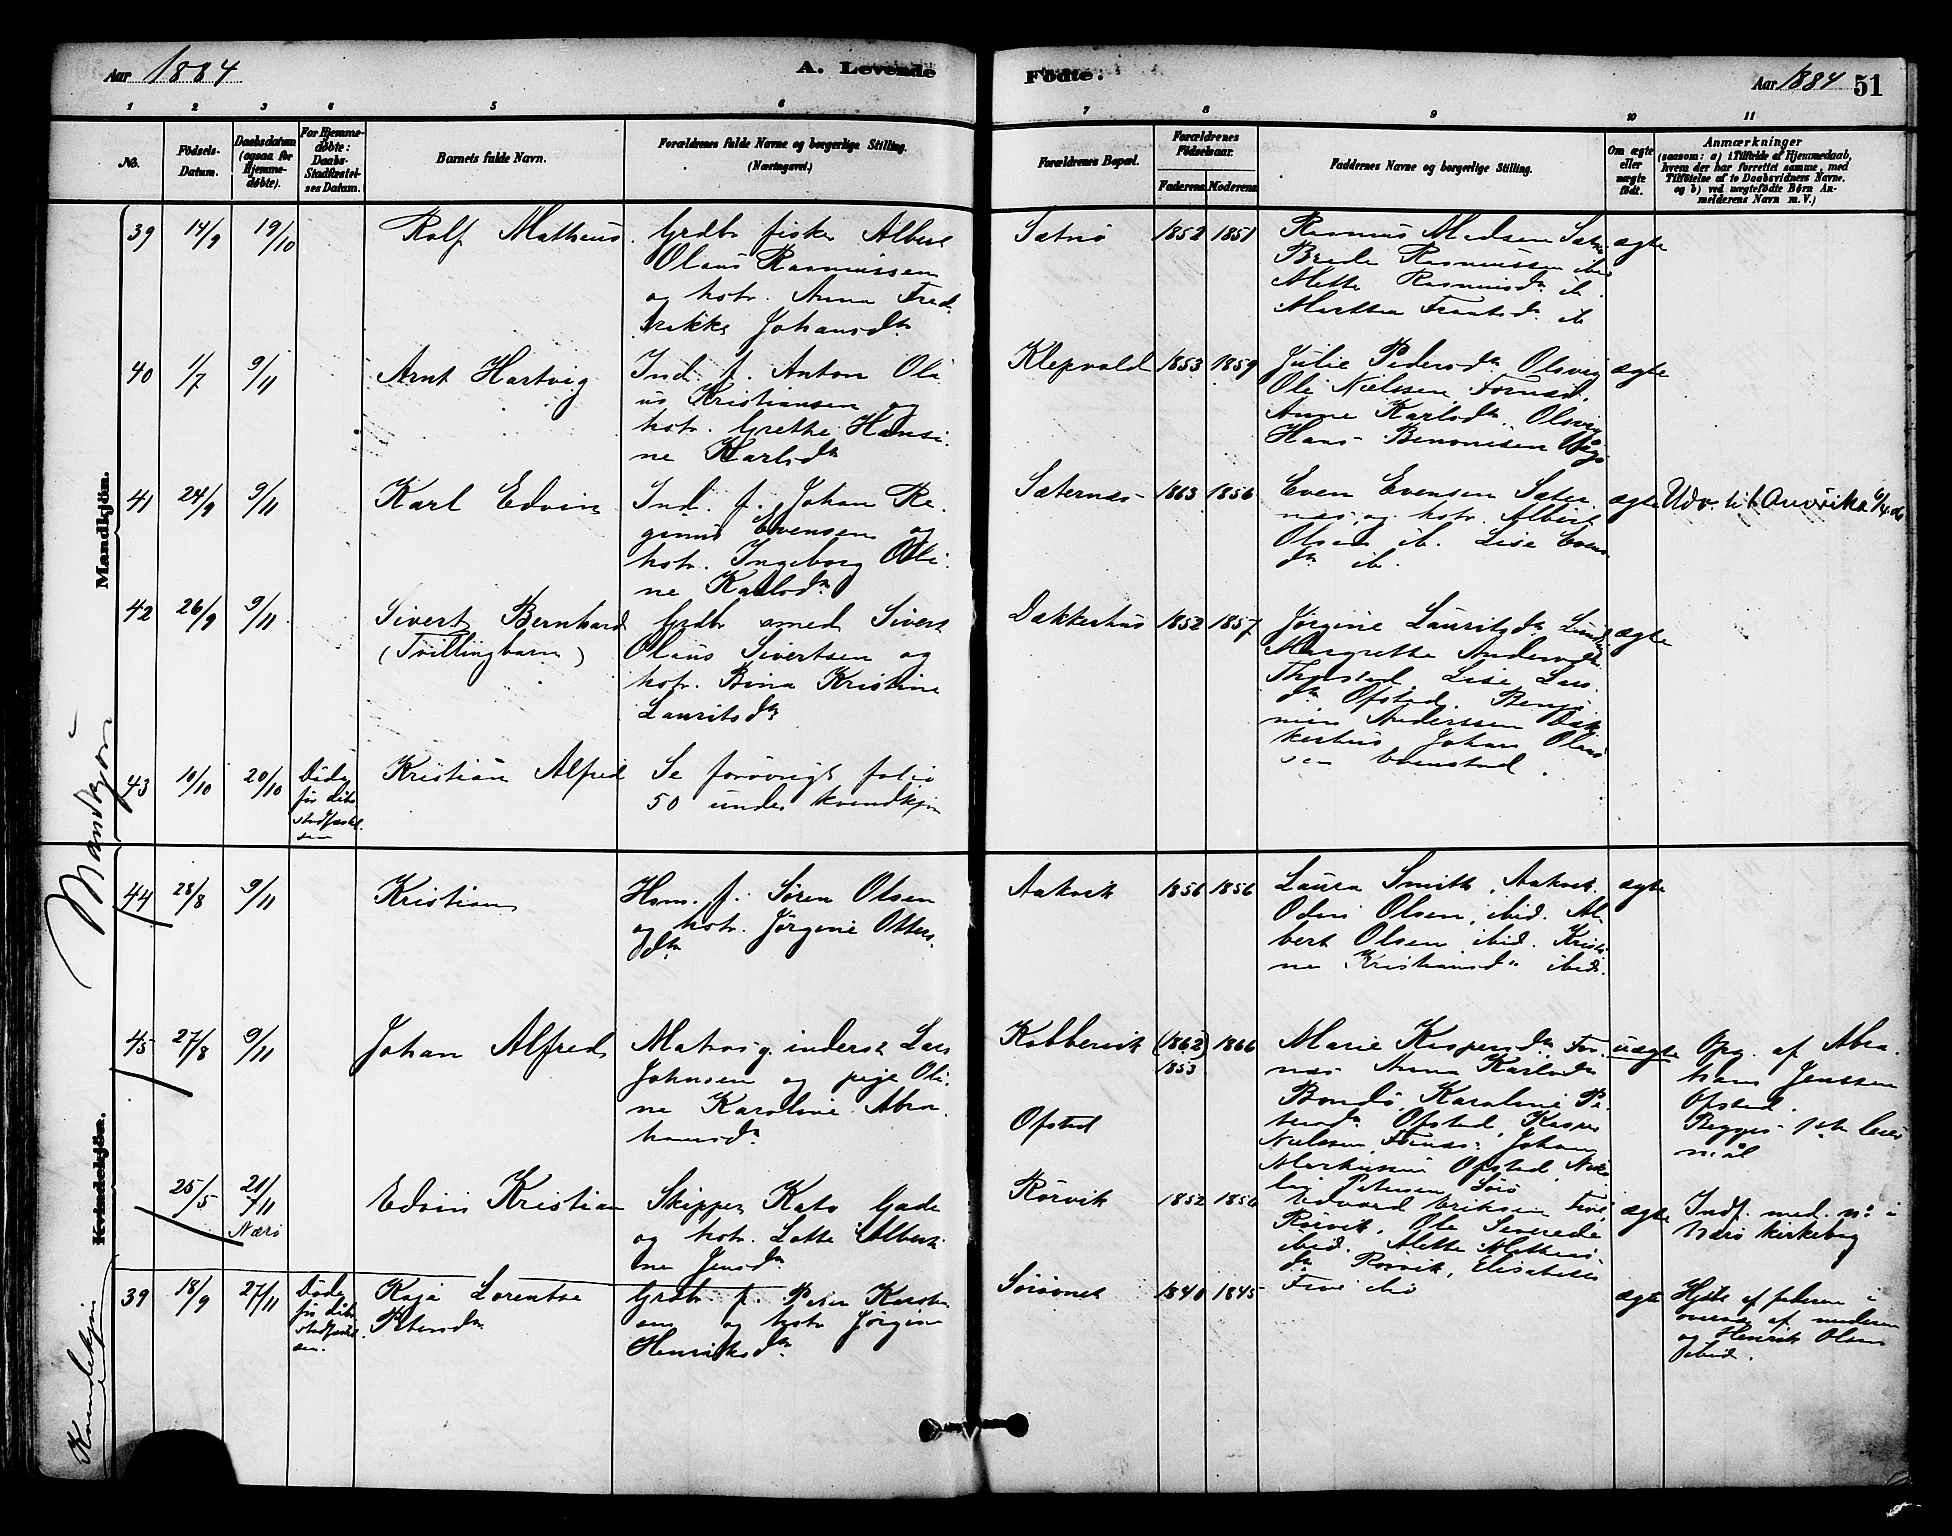 Aar 1884
A. Levende
Fødte.
Aar 1884
51
1 2 3 4 5 6 7 8 9 10 11
No.
Födsels-
Datum.
Daabsdatum
(ogsaa for
Hjemme-
døbte).
For Hjemme-
døbte:
Daabs-
Stadfæstel-
ses Datum.
Barnets fulde Navn.
Forældrenes fulde Navne og borgerlige Stilling.
(Næringsvei.)
Forældrenes Bopæl.
Forældrenes
Födselsaar.
Faderens
Moderens
Faddernes Navne og borgerlige Stilling.
Om ægte
eller
uægte
født.
Anmærkninger
(saasom: a) i Tilfælde af Hjemmedaab,
hvem der har forrettet samme, med
Tilføielse af to Daabsvidners Navne.
og b) ved uægtefødte Børn An-
melderens Navn m. V.)
Mandkjön.
39
14/9
19/10
Rolf Matheus.
Grdbr fisker Albert
Olaus Rasmussen
og hstr. Anna Fred-
rikke Johansdtr
Sætnø
1852
1851
Rasmus Madsen
Brede Rasmussen ibid
Mette Rasmusdr ib.
Marthea ib
ægte
40
1/7
9/11
Arnt Hartvig
Ind. f. Anton Ola
us Kristiansen og
hstr. Grethe Hansi-
ne Karlsdr
Klepvold
1853
1859
Julie Pedersdr Olsvig
Ole Nielssen Fornæs.
Anne Karlsdr. Olsvig
Hans Benonisen
ægte
41
24/9
9/11
Karl Edvin
Ind. f. Johan Re-
ginus Evensen og
hstr. Ingeborg Oli-
ne Karlsdr
Sæternæs
1863
1856
Even Evensen Sæter
næs, og hstr. Albert
Olsen ib. Lise Evens
dr ib.
ægte
Udv. til Amerika
42
26/9
9/11
Sivert Bernhard
(Tvillingbarn)
Grdbr smed Sivert
Olaus Sivertsen og
hstr. Bina Kristine
Lauritsdr
Dakkerhus
1852
1857
Jørgine Lauritsdr. Lund
Margrethe Andersdr
Lise Lars
dr Ofstad. Benja
min Anderssen Dak
kerhus Johan Olaus
sen
ægte
43
10/10
20/10
Døde
før dåbs
stadfæstel
sen
Kristian Alfred
Se forøvrigt folio
50 under kvindkjøn
Mandkjøn
44
28/8
9/11
Kristian
Hsm. f. Søren Olsen
og hstr. Jørgine Otters
dtr
Aakvik
1856
1856
Laura Smith, Aakvik.
Odin Olsen, ibid. Al-
bert Olsen ibid. Kristi
ne Kristiansdr ibid.
ægte
45
27/8
9/11
Johan Alfred
Matros g. inderst Lars
Johnsen og pige Oli-
ne Karoline Abra-
hamsdr
Kobbervik
Ofstad
(1862)
1853
1866
Marie Kaspersdr. For-
næs Anna Karlsdr
Bondø, Karoline Pe-
tersdr Ofstad, Kasper
Nielssen, Fornæs. Johan
Markussen Ofstad, Niko
lai Petersen
uægte
Opg. af Abra-
ham Jenssen
Ofstad.
Begges 1ste leier
mål
Kvindekjön.
25/5
21/11
7/11
Nærø
Edvin Kristian
Skipper Kato Gade
og hstr. Lotte Alberti
ne Jensdr
Rørvik
1852
1856
Edvard Eriksen
Rørvik, Ole Severede
ibid. Mette Mathias
dr Rørvik, Elisabeth
ibid
ægte
Indf. med no i
Nærø kirkebog
Kvindekjøn
39
18/9
27/11
Døde
før dåbs
stadfæstel
sen.
Kaja Lorentse
Petersdr
Grdbr. f. Peter Karste
sen og hstr Jørgine
Henriksdr
Sørøvnes
1840
1845
ægte
Hjdbt af faderen i
overvær af moderen
og Henrik Olsen
ibid.